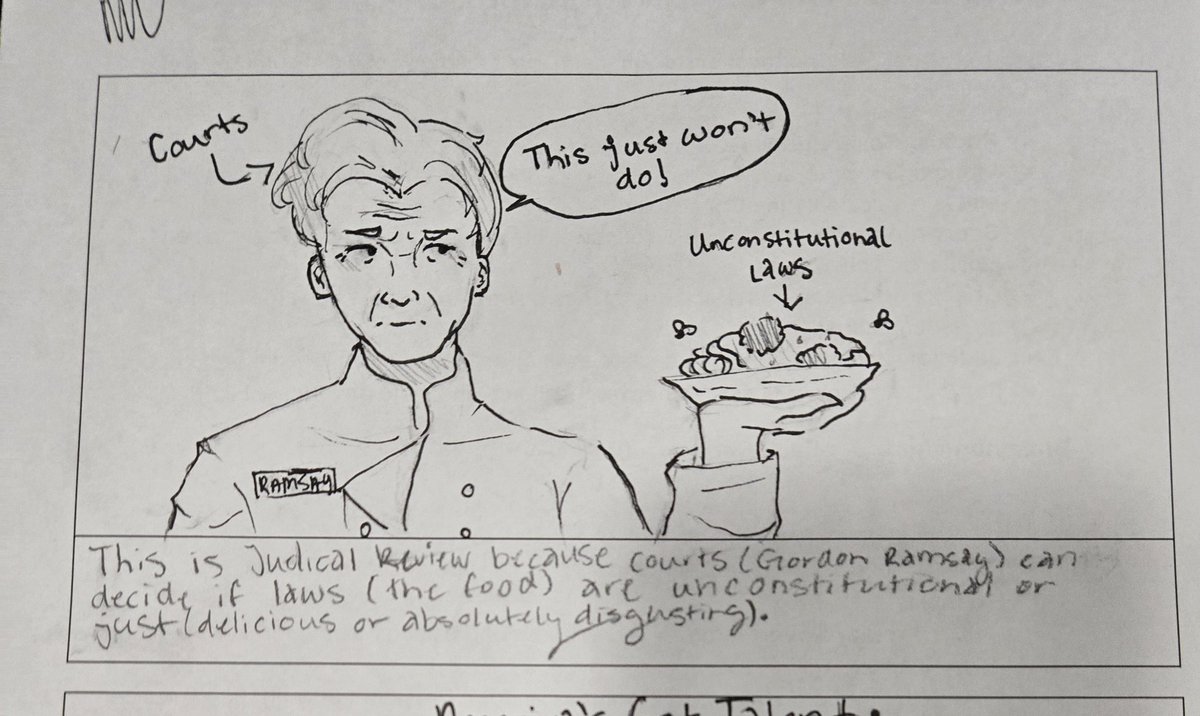 Courts
This just won't
do!
Unconstitutional
Laws
RAMSAY
This is Judical Review because courts (Gordon Ramsay) can
decide if laws (the food) are unconstitutional or
just (delicious or absolutely disgusting).
Got Talent